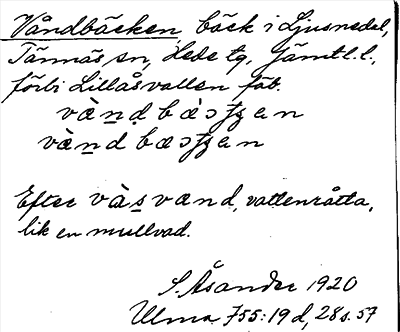 Våndbäcken, bäck i Ljusnedal,
Tännäs sn, Hede tg, Jämtl. l.,
förbi Lillåsvallen fäb.
væ̀nd bæ̀
væ̀nd bæ
Efter væ̀s vænd, vattenråtta,
lik en mullvad.
S. Åsander 1920
Ulma 755:19 d, 28 s. 57